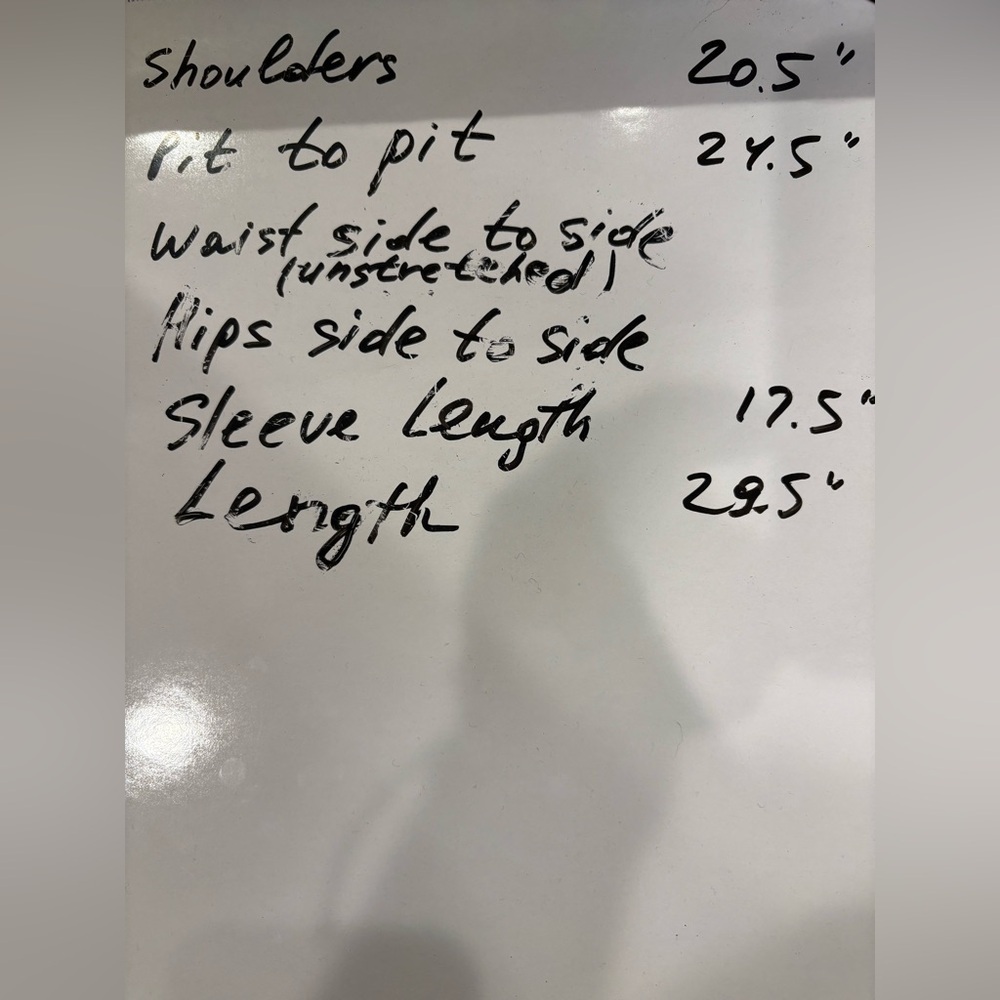 Shoulders 20.5"
Pit to pit 24.5"
Waist side to side
(unstretched)
Hips side to side
Sleeve Length 17.5"
Length 29.5"